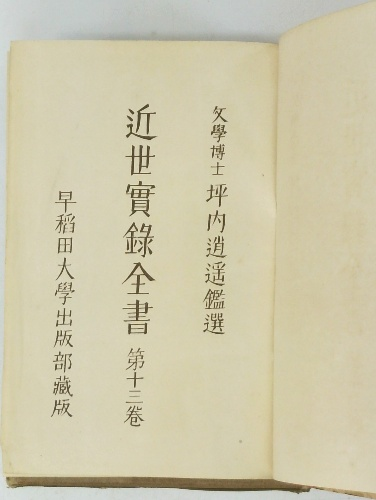 文學博士 坪内逍遥鑑選
近世實錄全書 第十三卷
早稻田大學出版部藏版